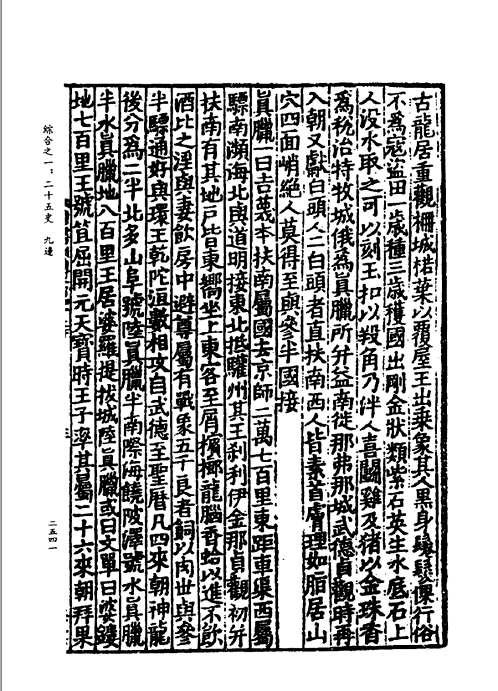 古龍居重觀柵城楉葉以覆屋王出乘象其人黑身鬈髮倮行俗
不為寇盜田一歲種三歲穫國出剛金狀類紫石英生水底石上
人沒水取之可以刻玉扣以羖角乃泮人喜鬬雞及豬以金珠香
為稅治特牧城俄為真臘所并益南徙那弗那城武德貞觀時再
入朝又獻白頭人二白頭者直扶南西人皆素首膚理如脂居山
穴四面峭絕人莫得至與參半國接
真臘一曰吉蔑本扶南屬國去京師二萬七百里東距車渠西屬
驃南瀕海北與道明接東北抵驩州其王剎利伊金那貞觀初并
扶南有其地戶皆東嚮坐上東客至屑檳榔龍腦香蛤以進不飲
酒比之淫與妻飲房中避尊屬有戰象五千良者飼以肉世與參
半驃通好與環王乾陀洹數相攻自武德至聖曆凡四來朝神龍
後分為二半北多山阜號陸真臘半南際海饒陂澤號水真臘
半水真臘地八百里王居婆羅提拔城陸真臘或曰文單曰婆鏤
地七百里王號䇦屈開元天寶時王子率其屬二十六來朝拜果
綜合之一：二十五史 九邊
二五四一